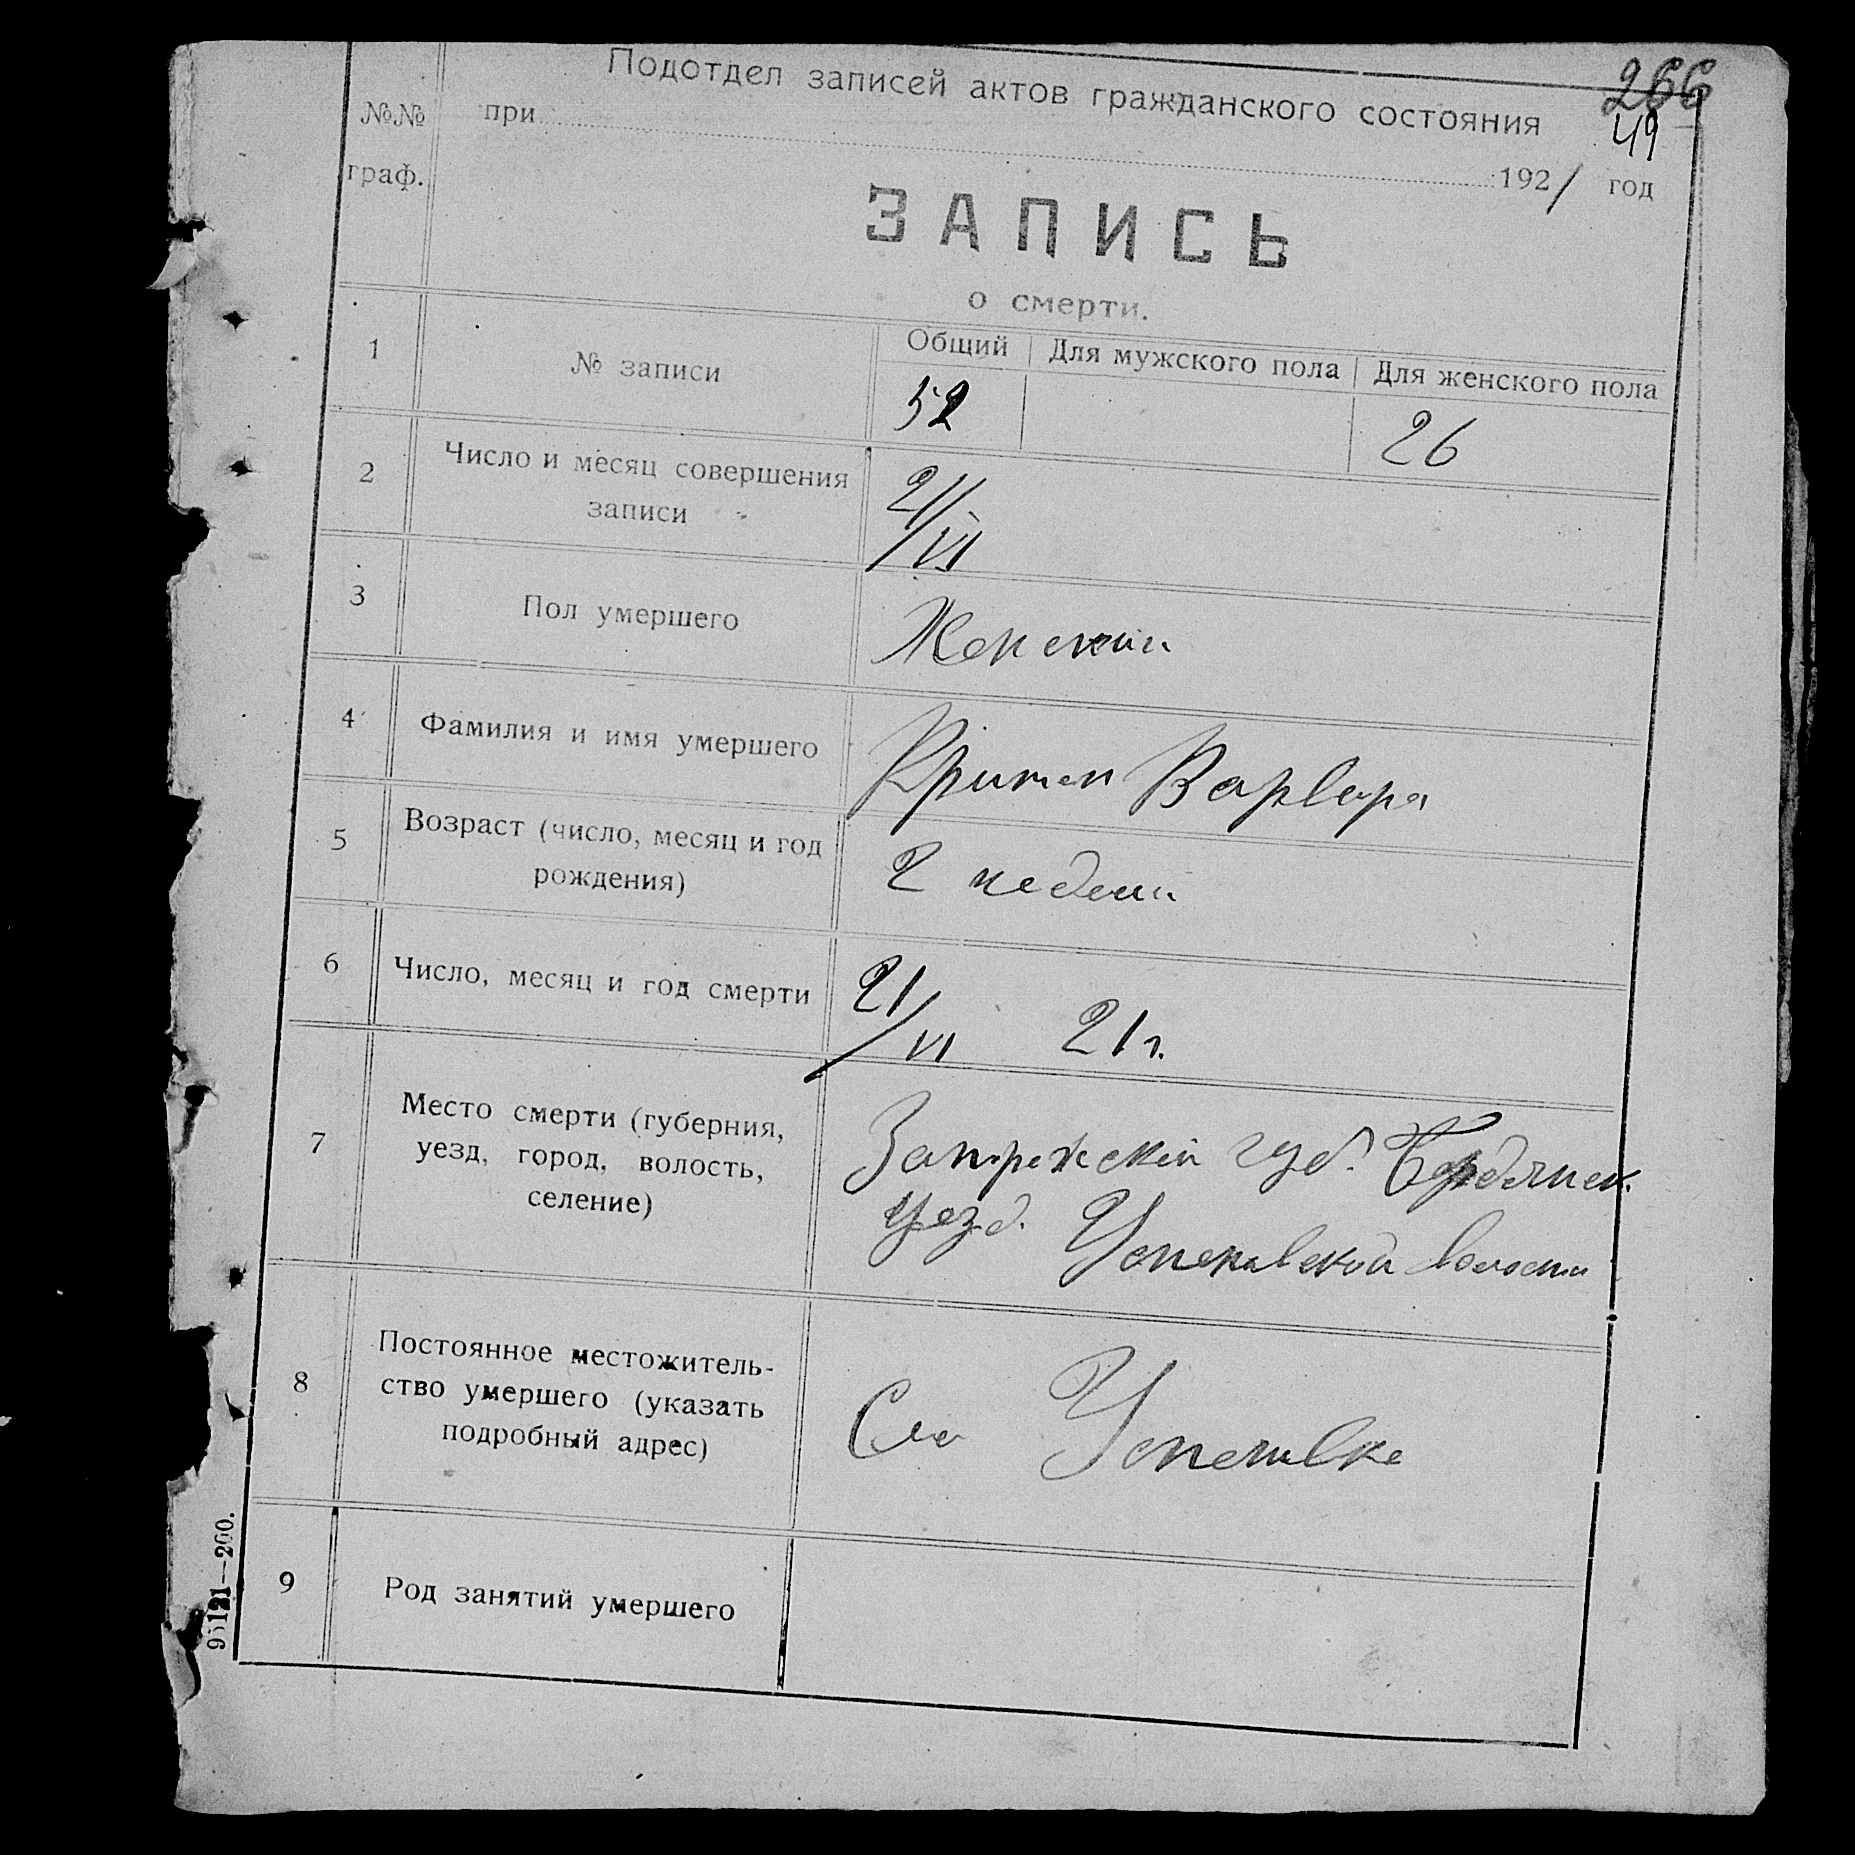 266
49
Подотдел записей актов гражданского состояния
№№ граф.
при 1921 год
ЗАПИСЬ
о смерти.
1 № записи Общий Для мужского пола Для женского пола
52 26
2 Число и месяц совершения записи 21/VI
3 Пол умершего Женский
4 Фамилия и имя умершего Варвара
5 Возраст (число, месяц и год рождения) 2 недели
6 Число, месяц и год смерти 21/VI 21 г.
7 Место смерти (губерния, уезд, город, волость, селение) губ. Бердянск.
уезд. волости
8 Постоянное местожитель-
ство умершего (указать
подробный адрес)
9 Род занятий умершего